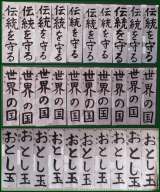 伝統を守る
伝統を守る
伝統を守る
伝統を守る
伝統を守る
伝統を守る
伝統を守る
伝統を守る
伝統を守る
世界の国
世界の国
世界の国
世界の国
世界の国
世界の国
世界の国
世界の国
世界の国
世界の国
おとし玉
おとし玉
おとし玉
おとし玉
おとし玉
おとし玉
おとし玉
おとし玉
おとし玉
おとし玉